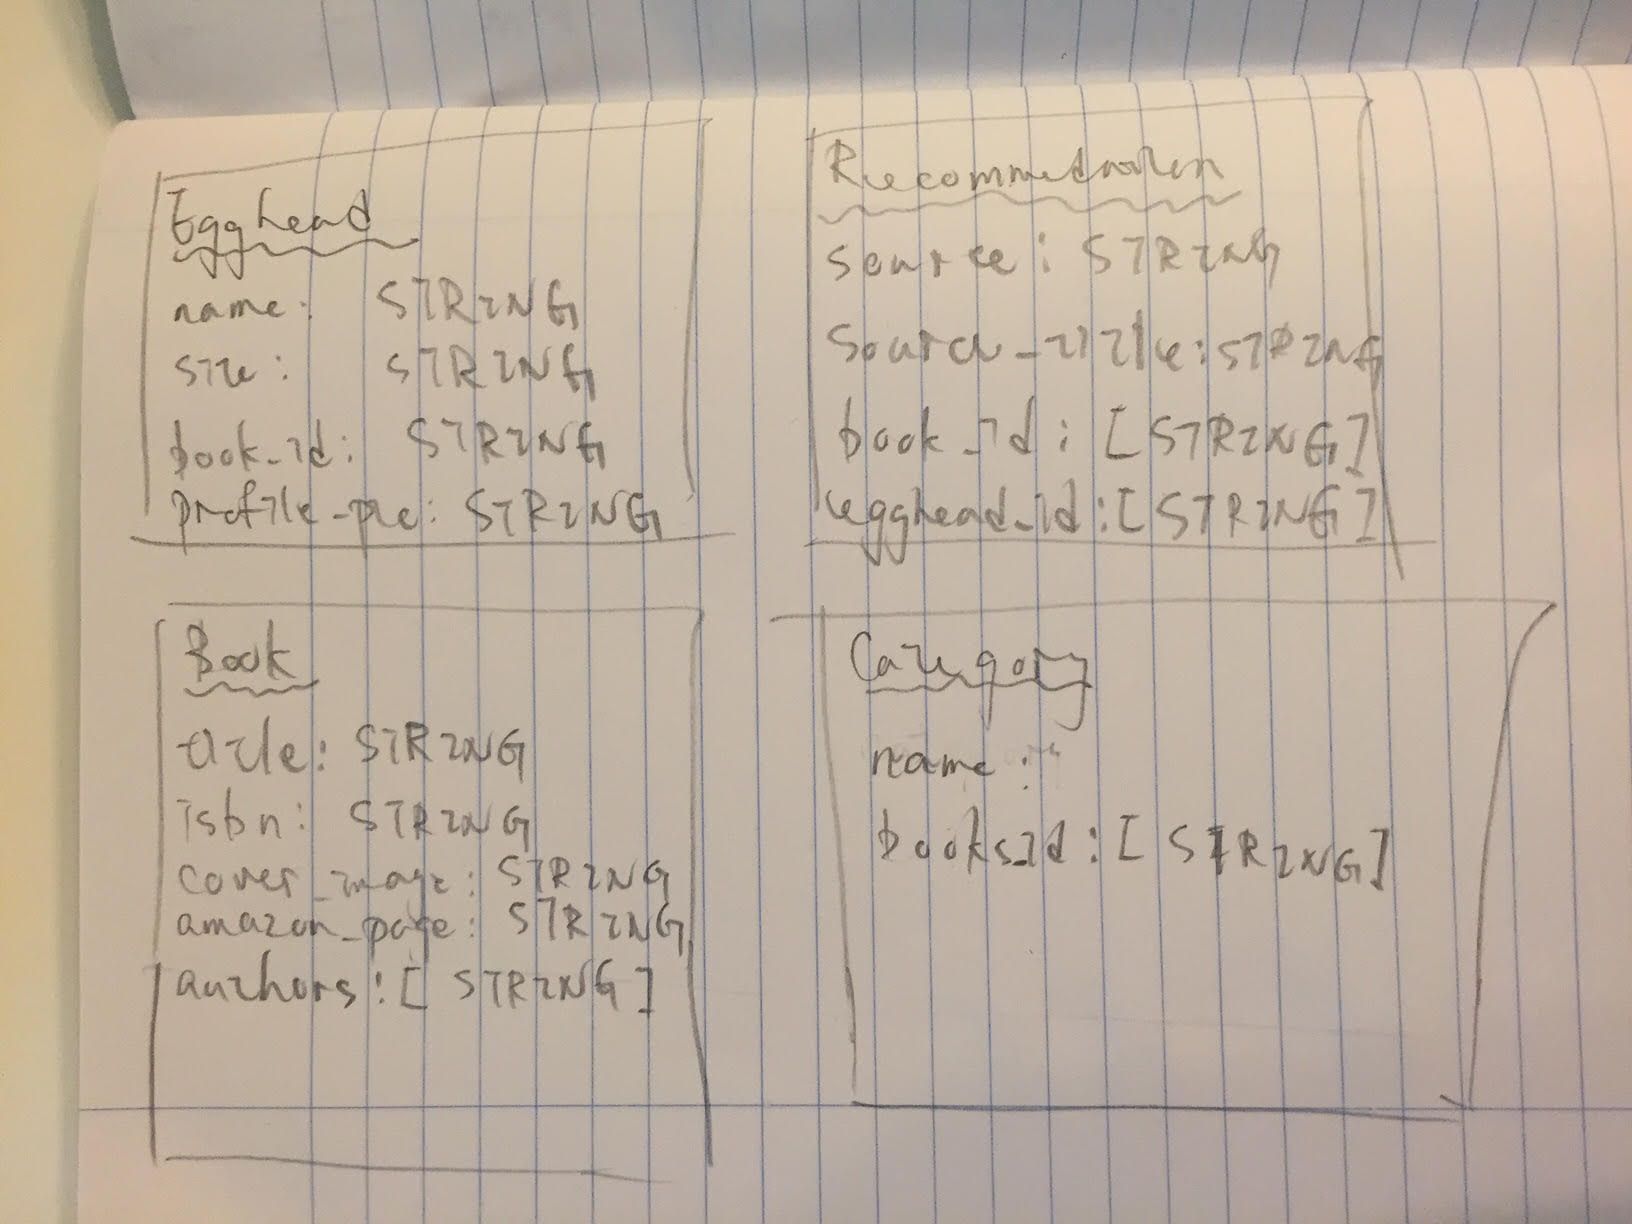 Egghead
name: STRING
site: STRING
book_id: STRING
profile_pic: STRING
Recommedation
source: STRING
source_title: STRING
book_id: [STRING]
egghead_id: [STRING]
Book
title: STRING
isbn: STRING
cover_image: STRING
amazon_page: STRING
authors: [STRING]
Category
name:
books_id: [STRING]